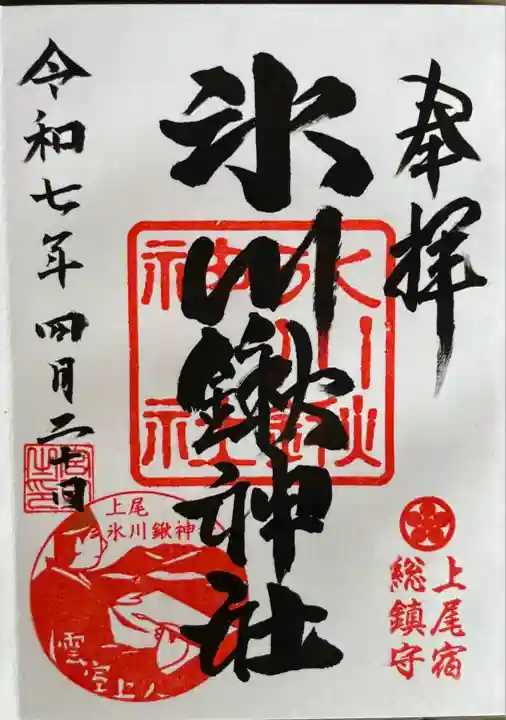 奉拝
上尾宿
総鎮守
氷川鍬神社
氷川鍬
神社
令和七年四月二十日
上尾
氷川鍬神
雲室上人